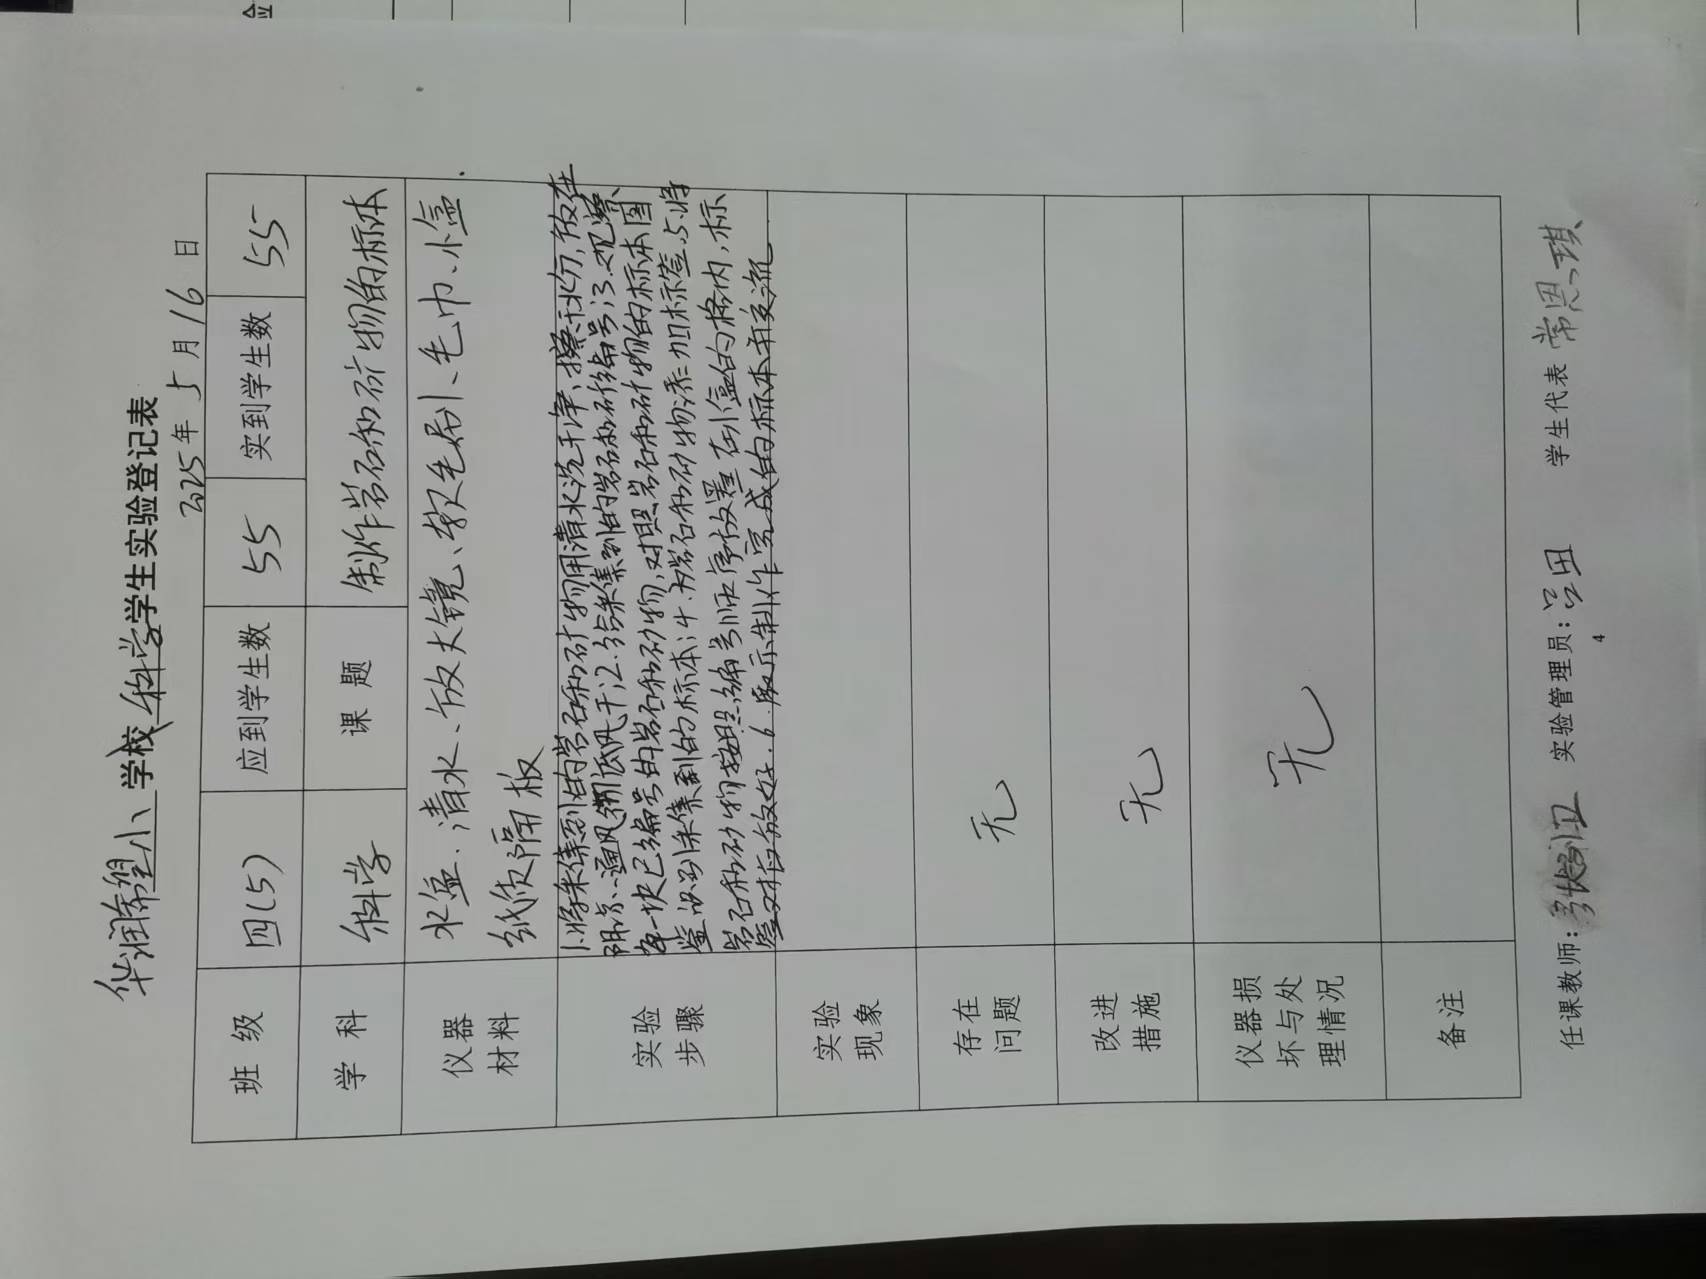 华润希望小学校科学学生实验登记表
2025年5月16日
班级 四(5) 应到学生数 55 实到学生数 55
学科 科学 课题 制作岩石和矿物的标本
仪器材料
水盆、清水、放大镜、软毛刷、毛巾、小盒
纸质隔板
实验步骤
1.将采集到的岩石和矿物用清水洗干净,擦干水分,放在
阴凉、通风
干;2.给采集到的岩石和矿物编号;3.观察
每一块已编号的岩石和矿物,对照岩石和矿物的标本图
鉴识别采集到的标本;4.为岩石和矿物添加标签.5.将
岩石和矿物按照编号顺序放置在小盒的格内,标
签对应放好.6.展示制作完成的标本并交流
实验现象
存在问题 无
改进措施 无
仪器损坏与处理情况 无
备注
任课教师: 实验管理员: 学生代表 常思琪
4